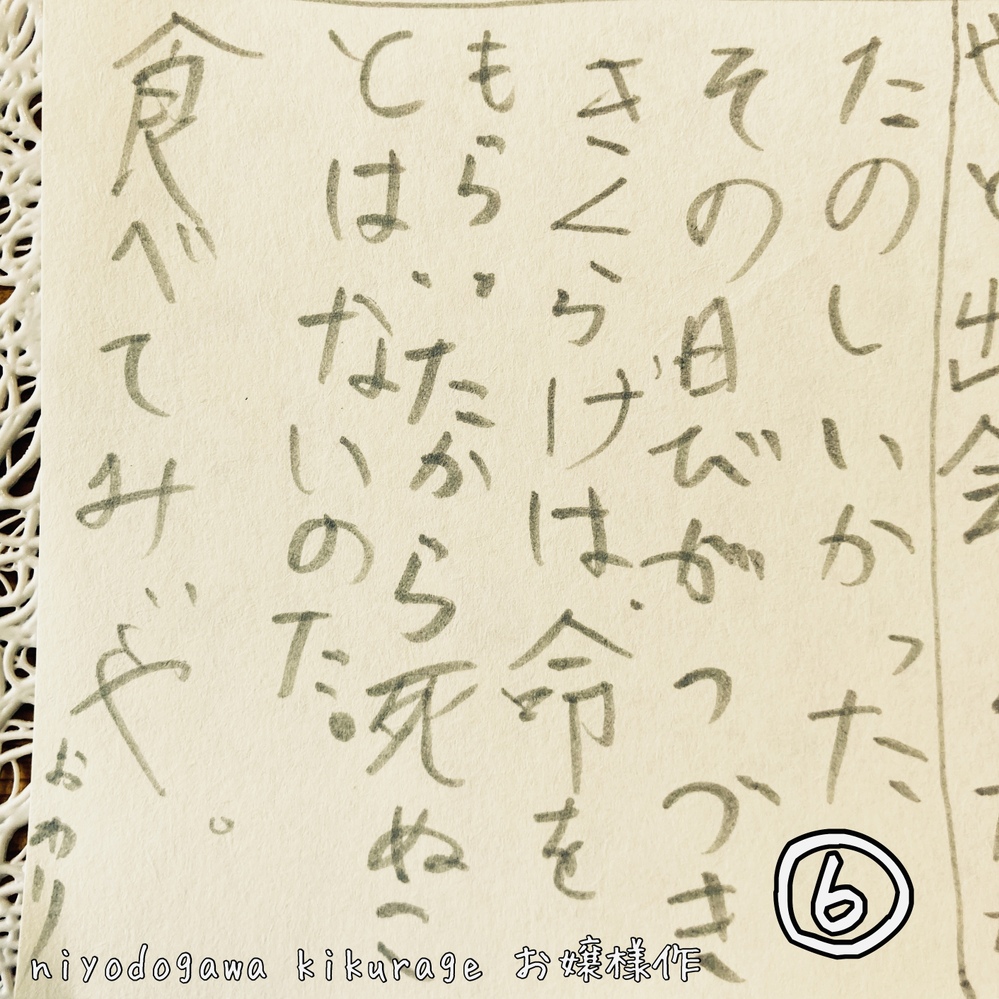 出会
たのしいかった
その日びがつづき
きくらげは、命を
もらいたから死ぬこ
とはないのた。
食べてみぃや。
おわり
⑥
niyodogawa kikurage お嬢様作